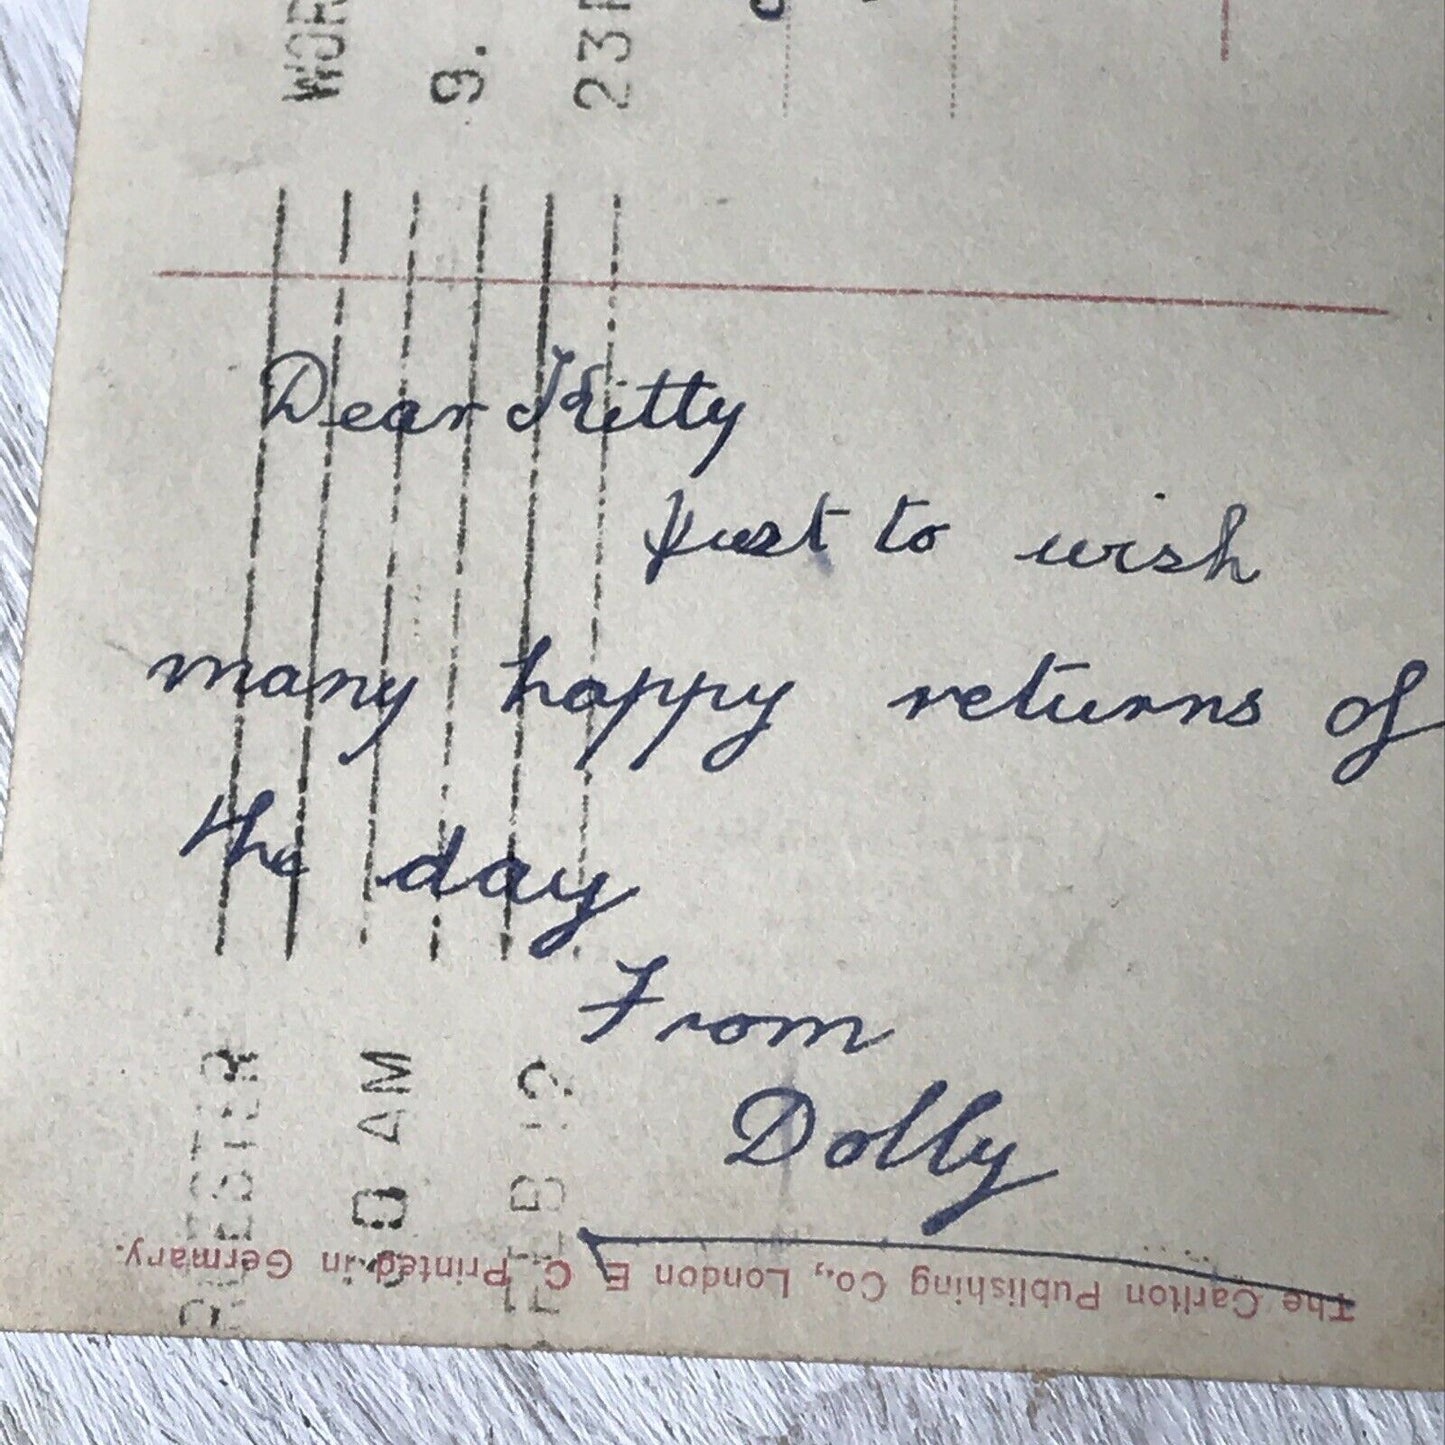 Dear Kitty
Just to wish
many happy returns of
the day
From
Dolly
The Carlton Publishing Co., London E. C. Printed in Germany.
9.
AM